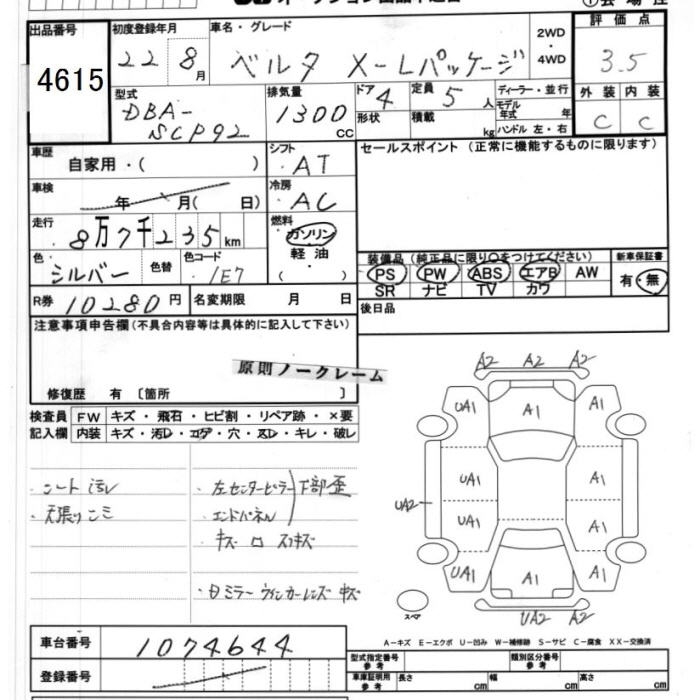 出品番号 初度登録年月 車名・グレード 2WD ・ 4WD 評価点
4615 22 8月 ベルタ X-Lパッケージ 3.5
型式 排気量 ドア 4 定員 5人 ディーラー・並行 外装 内装
DBA- SCP92 1300 CC 形状 積載 kg モデル年式 年 ハンドル 左・右 C C
車歴 自家用・( ) シフト AT セールスポイント (正常に機能するものに限ります)
車検 年 月( 日) 冷房 AC
走行 8万7千235km 燃料 ガソリン
軽油・( )
色 シルバー 色替 色コード 1E7
装備品 (純正品に限り○をつけてください) 新車保証書
PS PW ABS エアB AW 有・無
SR ナビ TV カワ
R券 10280円 名変期限 月 日 後日品
注意事項申告欄(不具合内容等は具体的に記入して下さい)
原則ノークレーム
修復歴 有 〔箇所 〕
検査員 FW キズ・飛石・ヒビ割・リペア跡・×要
記入欄 内装 キズ・汚レ・コゲ・穴・スレ・キレ・破レ
・シート汚レ
・天張りシミ
・左センターピラー 下部歪
・エンドパネル
・キズ 口 スリキズ
・日ミラーウィンカーレンズ キズ
A2 A2 A2
UA1 A1 A1
UA1 A1
UA2
UA1 A1
UA1 A1 A1
スペア UA2 A2
車台番号 1074644
A-キズ E-エクボ U-凹み W-補修跡 S-サビ C-腐食 XX-交換済
登録番号
型式指定番号 参考 類別区分番号 参考
車庫証明用 参考 長さ cm 幅 cm 高さ cm